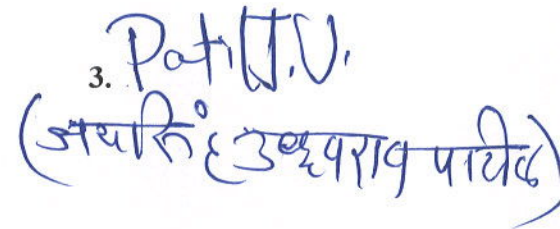 3. Patil J.V.
(जयसिंह उध्दवराव पाटील)